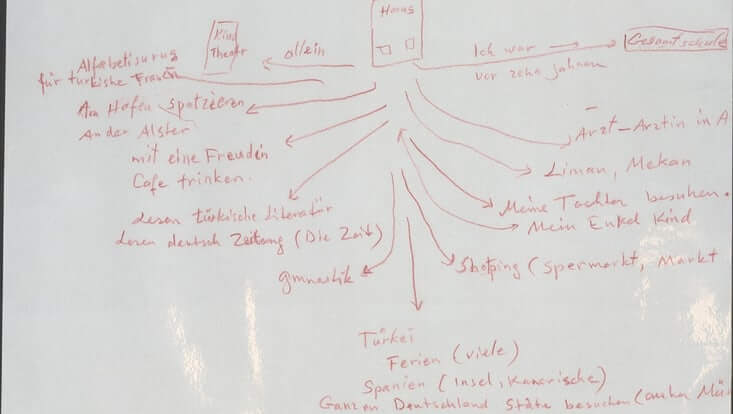 Haus
Kino
Theater
allein
Ich war
vor zehn jahnen
Gesamtschule
Alfabetisurug
für türkishe Frauen
Am Hafen spatzieren
An der Alster
mit eine Freuden
Cafe trinken.
lesen türkische Literatür
lesen deutsch Zeitung (Die Zeit)
gmnastik
Arzt-Arztin in A
Liman, Mekan
Meine Tochter besuhen.
Mein Enkel Kind
Shopping (Spermarkt, Markt
Türkei
Ferien (viele)
Spanien (Insel, Kanarische)
Ganzen Deutschland Städte besuchen